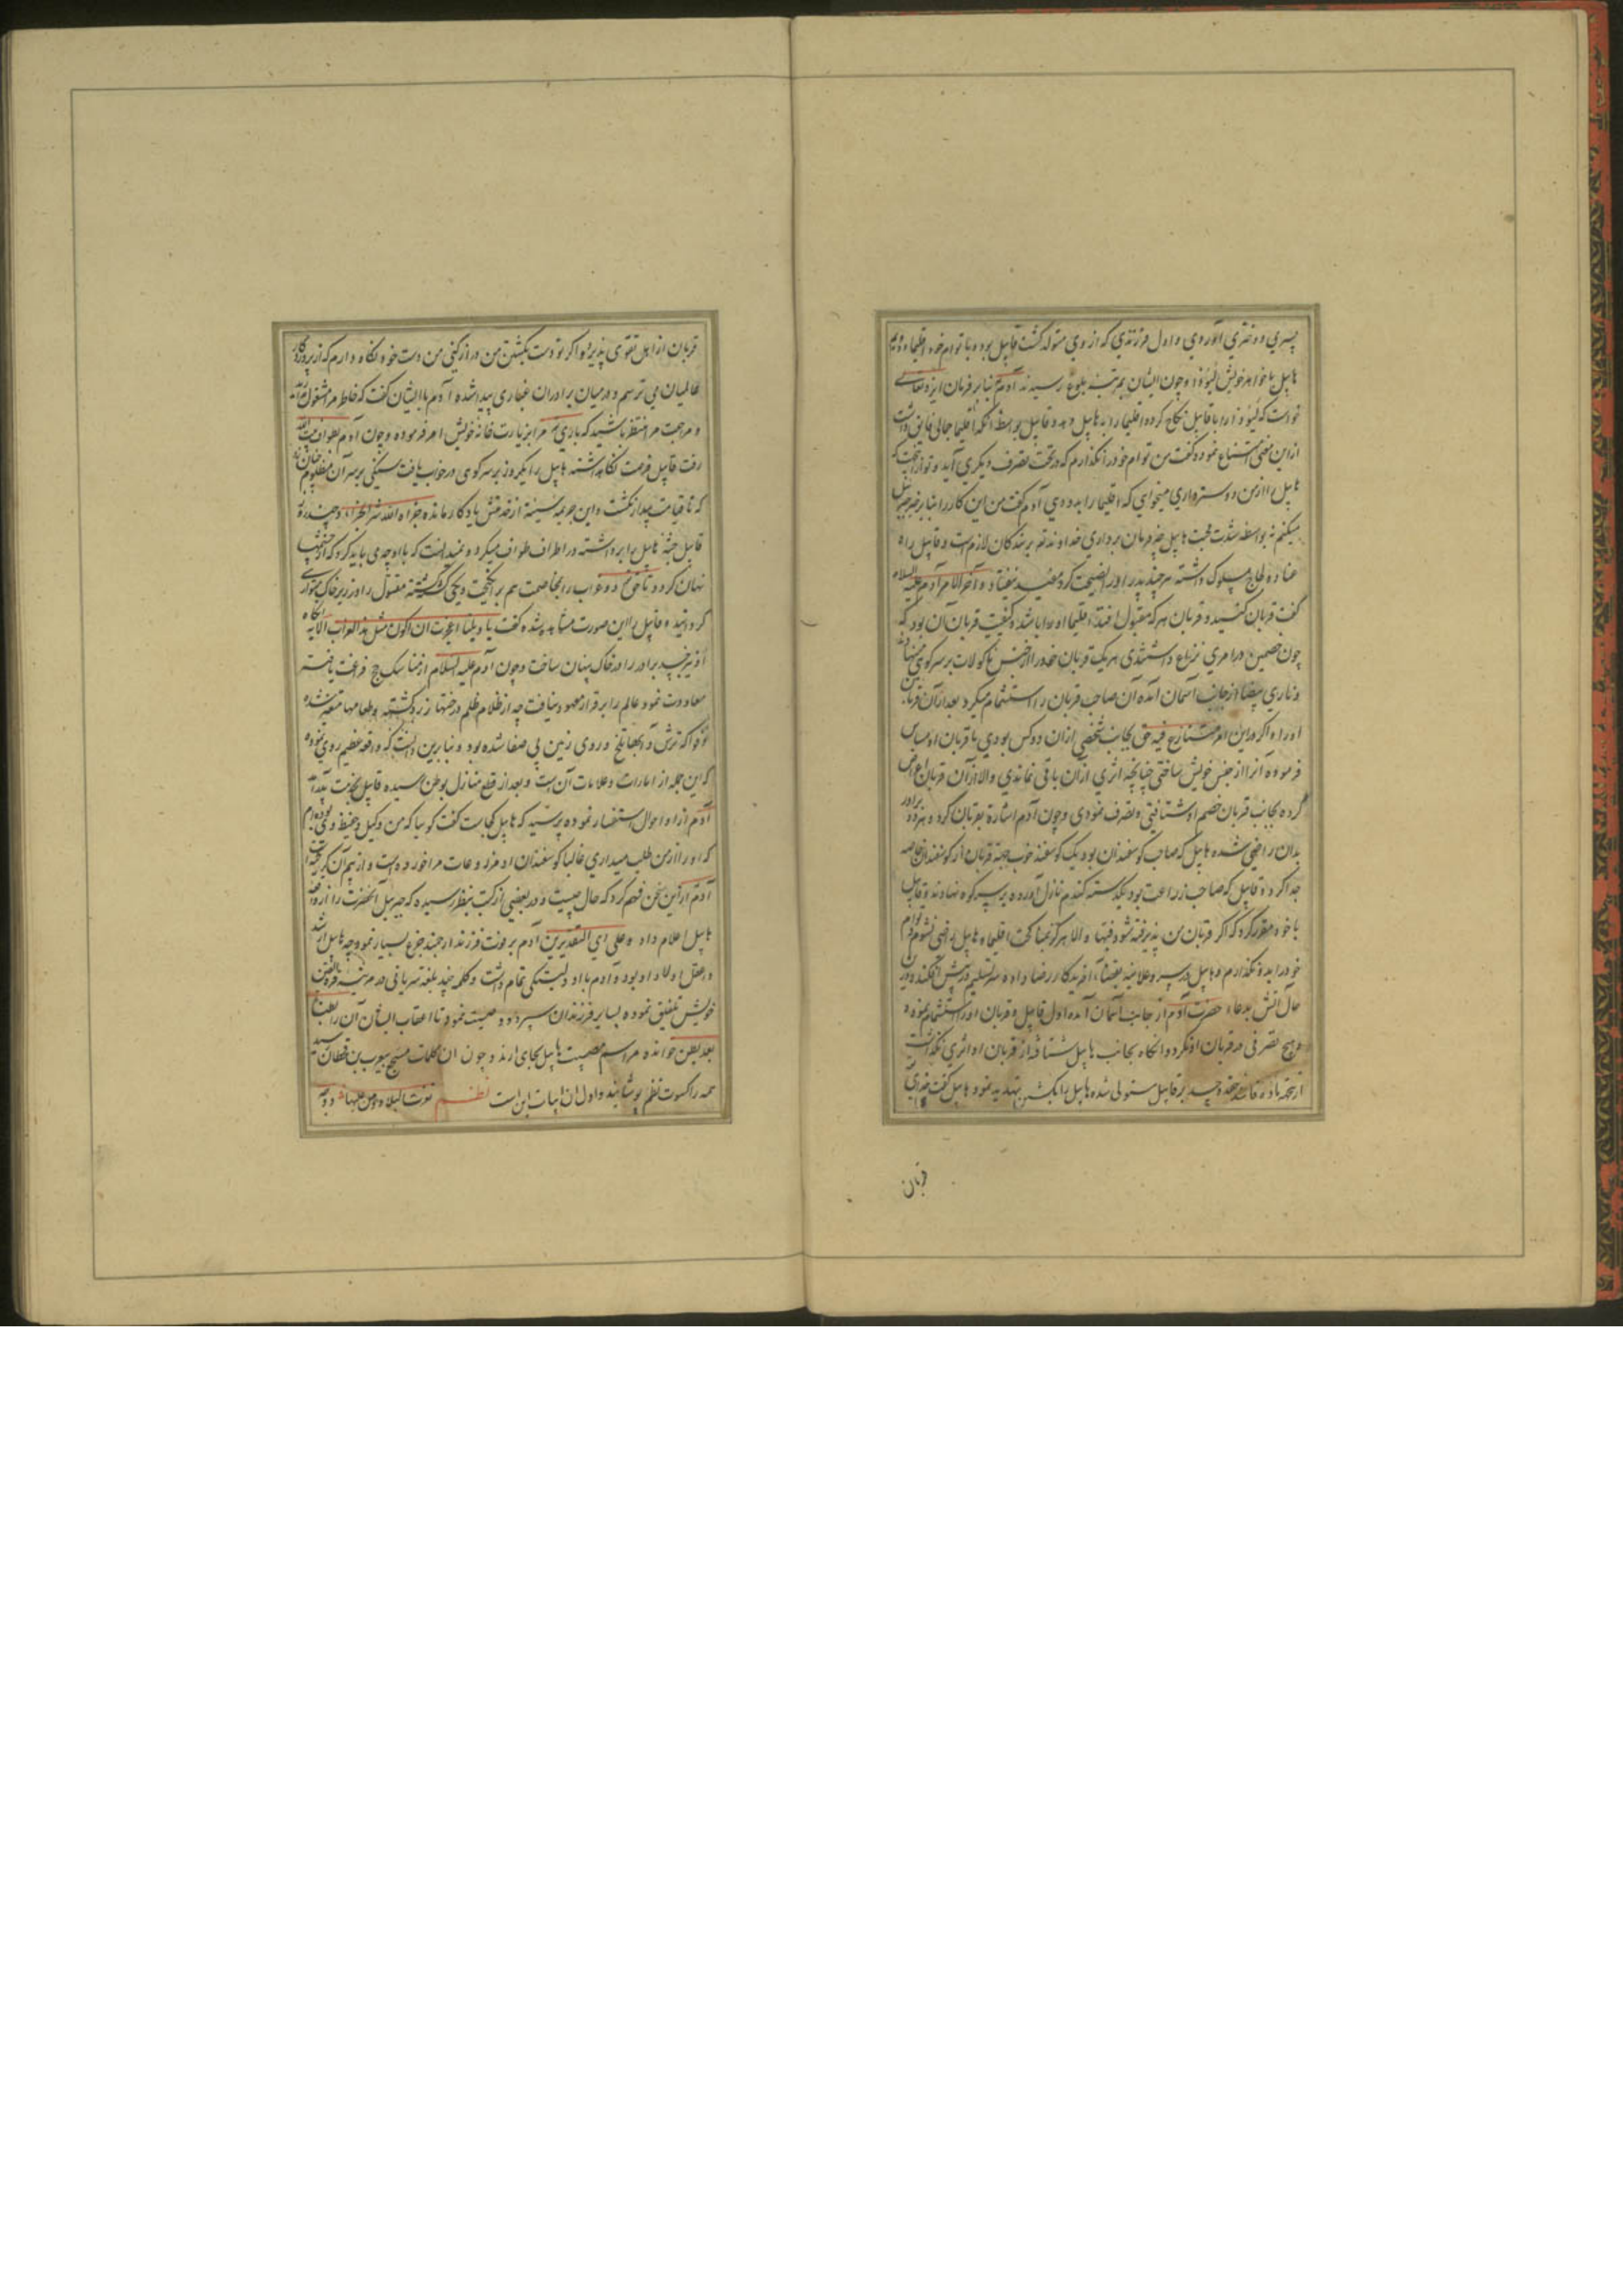 پسری و دختری آوردی و اول فرزندی که از وی متولد گشت قابیل بود و با توام خود اقلیما و دوم
هابیل با خواهر خویش لیوذا و چون ایشان بمرتبه بلوغ رسیدند آدم بنابر فرمان ایزد تعالی
خواست که لیوذا را با قابیل نکاح کرده اقلیما را به هابیل دهد و قابیل بواسطه آنکه اقلیما جمالی فایق داشت
ازین معنی امتناع نموده گفت من توام خود را نگذارم که در تحت تصرف دیگری آید و تو از آن جهت که
هابیل را از من دوستر داری میخواهی که اقلیما را بدو دهی آدم گفت من این کار را بنابر خبر جبرئیل
میکنم نه بواسطه شدت محبت هابیل چه فرمان برداری خداوند بر بندگان لازم است و قابیل راه
عناد و لجاج مسلوک داشته هر چند پدر او را نصیحت کرد مفید نیفتاد و آخر الامر آدم علیه السلام
گفت قربان کنید و قربان هر که مقبول افتد اقلیما او را باشد و کیفیت قربان آن بود که
چون خصمین در امری نزاع داشتندی هر یک قربان خود را از جنس ماکولات بر سر کوهی نهادند
و ناری بیضا از جانب آسمان آمده آن صاحب قربان را استشمام میکرد بعد از آن قربان
او را و اگر در این امر متنازع فیه حق بجانب شخصی ازان دو کس بودی با قربان او مساس
فرموده آنرا از جنس خویش ساختی چنانچه اثری ازان باقی نماندی و الا از آن قربان اعراض
کرده بجانب قربان خصم او شتافتی و تصرف نمودی و چون آدم اشارة بقربان کرد هر دو برادر
بدان راضی شده هابیل که صاحب گوسفندان بود یک گوسفند خوب جهة قربان از گوسفندان خاصه
جدا کرد و قابیل که صاحب زراعت بود یکدسته گندم نازل آورده بر سر کوه نهادند و قابیل
با خود مقرر کرد که اگر قربان من پذیرفته شود فبها و الا هرگز بمناکحت اقلیما و هابیل راضی نشوم و توام
خود را بدو نگذارم و هابیل در سر و علانیه بقضاء آفریدکار رضا داده سر تسلیم در پیش افکند و در آن
حال آتش بدعاء حضرت آدم از جانب آسمان آمده اول قابیل و قربان او را استشمام نمود و
هیچ تصرفی در قربان او نکرد و انگاه بجانب هابیل شتافته از قربان او اثری نگذاشت
حقد و حسد بر قابیل مستولی شده هابیل را بکشتن تهدید نمود هابیل گفت خدای
قربان
قربان از اهل تقوی پذیرد و اگر تو دست بکشتن من دراز کنی من دست خود نگاه دارم که از پروردگار
عالمیان می ترسم و در میان برادران غباری پیدا شده آدم با ایشان گفت که خاطر مرا مشغول مدارید
و مراجعت مرا منتظر باشید که باری مرا بزیارت خانه خویش امر فرموده و چون آدم بطواف بیت الله
رفت قابیل فرصت نگاه داشته هابیل را یکروز بر سر کوهی در خواب یافت سنگی بر سر آن مظلوم چنان زد
که تا قیامت بیدار نگشت و این جریمه از خدمتش یادگار مانده جزاه الله شر الجزاء و چند روز
قابیل جثهٔ هابیل را برداشته در اطراف طواف میکرد و نمیدانست که با او چه می باید کرد که از چشمها
نهان گردد تا حق دو غراب را بمخاصمت هم برانگیخت و یکی کشته مقتول را در زیر خاک متواری
گردانید و قابیل را این صورت مشاهده شده گفت یا ویلتا اعجزت ان اکون مثل هذا الغراب الآیه آنگاه
او نیز جسد برادر را در خاک پنهان ساخت و چون آدم علیه السلام از مناسک حج فراغت یافته
معاودت نمود عالم را بر قرار معهود نیافت چه از ظلام ظلم درختها زرد گشته و طعامها متغیر شده
و فواکه ترش و آبها تلخ و روی زمین بی صفا شده بود و بنابرین دانست که واقعه عظیم روی نموده
که این جمله از امارات و علامات آن است و بعد از قطع منازل بوطن رسیده قابیل بخدمت آمد
آدم از او احوال استفسار نموده پرسید که هابیل کجاست گفت گوییا که من وکیل و حفیظ وی بوده ام
که او را از من طلب میداری غالبا گوسفندان او مزروعات مرا خورده است و از بیم آن گریخته است
آدم از این سخن فهم کرد که حال چیست و در بعضی از کتب بنظر رسیده که جبرئیل آنحضرت را از واقعه
هابیل اعلام داد و علی ای التقدیرین آدم بر فوت فرزند ارجمند جزع بسیار نمود چه هابیل ارشد
و اعقل اولاد او بود و آدم با او دلبستگی تمام داشت و کلمه چند بلغة سریانی در مرثیه قرة العین
خویش تلفیق نموده بسایر فرزندان سپرد و وصیت نمود تا اعقاب ایشان آن را بطنا
بعد بطن خوانده مراسم مصیبت هابیل بجای آرند و چون آن کلمات مسجع بیعرب بن قحطان رسید
همه را کسوت نظم پوشانید و اول آن ابیات این است نظم تغیرت البلاد و من علیها